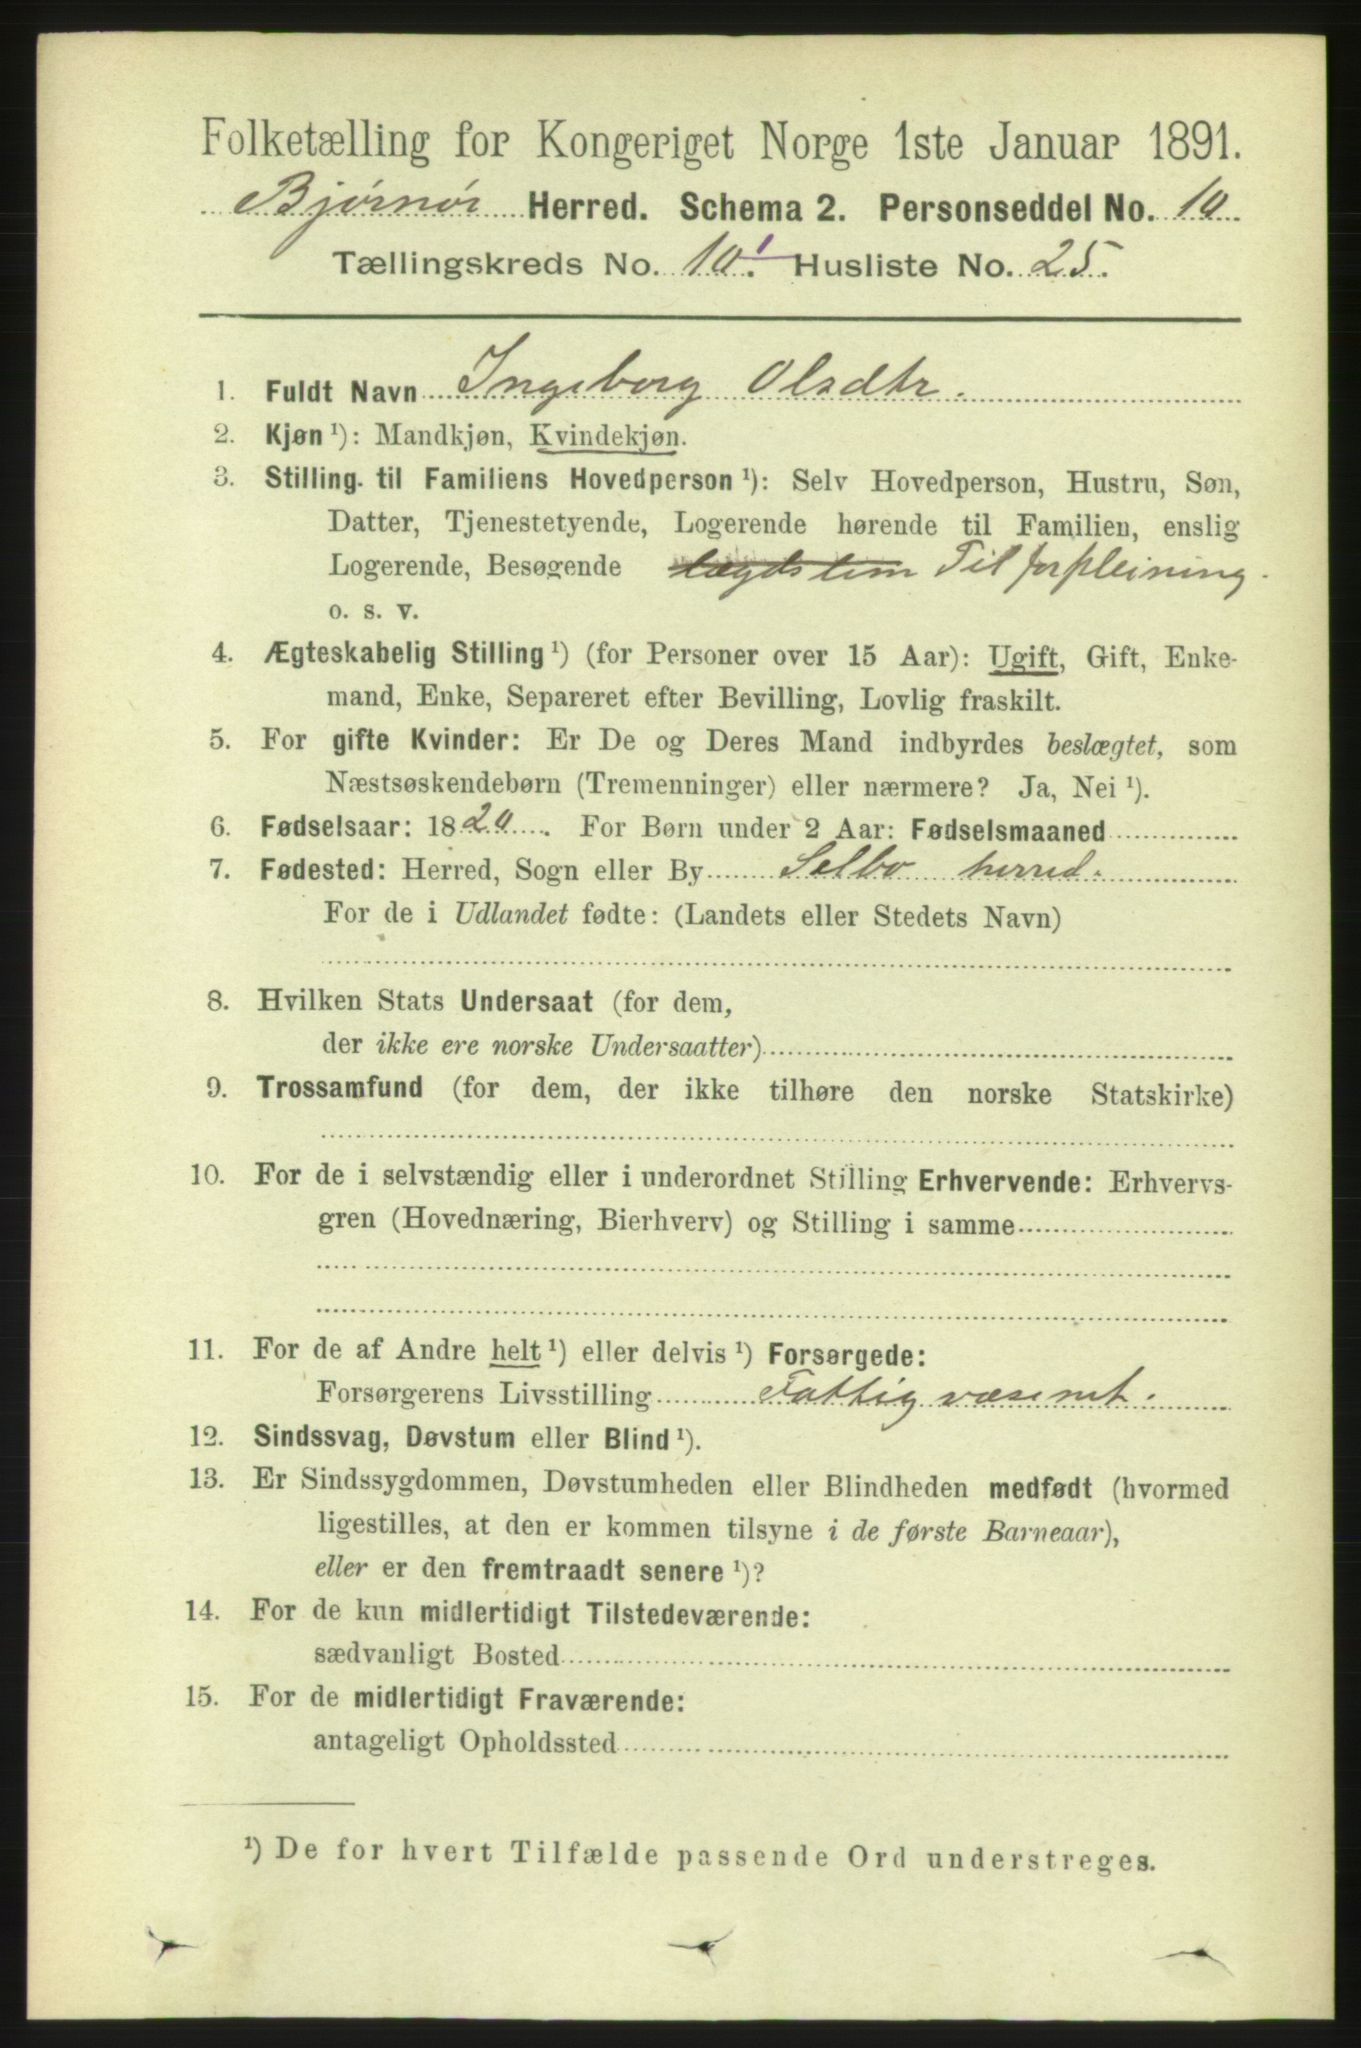 Folketælling for Kongeriget Norge 1ste Januar 1891.
Bjørnør Herred. Schema 2. Personseddel No. 10
Tællingskreds No. 10. Husliste No. 25.
1. Fuldt Navn Ingeborg Olsdtr.
2. Kjøn ¹): Mandkjøn, Kvindekjøn.
3. Stilling til Familiens Hovedperson ¹): Selv Hovedperson, Hustru, Søn,
Datter, Tjenestetyende, Logerende hørende til Familien, enslig
Logerende, Besøgende lægdslem Til forpleining.
o. s. v.
4. Ægteskabelig Stilling ¹) (for Personer over 15 Aar): Ugift, Gift, Enke-
mand, Enke, Separeret efter Bevilling, Lovlig fraskilt.
5. For gifte Kvinder: Er De og Deres Mand indbyrdes beslægtet, som
Næstsøskendebørn (Tremenninger) eller nærmere? Ja, Nei ¹).
6. Fødselsaar: 1820. For Børn under 2 Aar: Fødselsmaaned
7. Fødested: Herred, Sogn eller By Selbo herred.
For de i Udlandet fødte: (Landets eller Stedets Navn)
8. Hvilken Stats Undersaat (for dem,
der ikke ere norske Undersaatter)
9. Trossamfund (for dem, der ikke tilhøre den norske Statskirke)
10. For de i selvstændig eller i underordnet Stilling Erhvervende: Erhvervs-
gren (Hovednæring, Bierhverv) og Stilling i samme
11. For de af Andre helt ¹) eller delvis ¹) Forsørgede:
Forsørgerens Livsstilling Fattigvæsenet.
12. Sindssvag, Døvstum eller Blind ¹).
13. Er Sindssygdommen, Døvstumheden eller Blindheden medfødt (hvormed
ligestilles, at den er kommen tilsyne i de første Barneaar),
eller er den fremtraadt senere ¹)?
14. For de kun midlertidigt Tilstedeværende:
sædvanligt Bosted
15. For de midlertidigt Fraværende:
antageligt Opholdssted
¹) De for hvert Tilfælde passende Ord understreges.